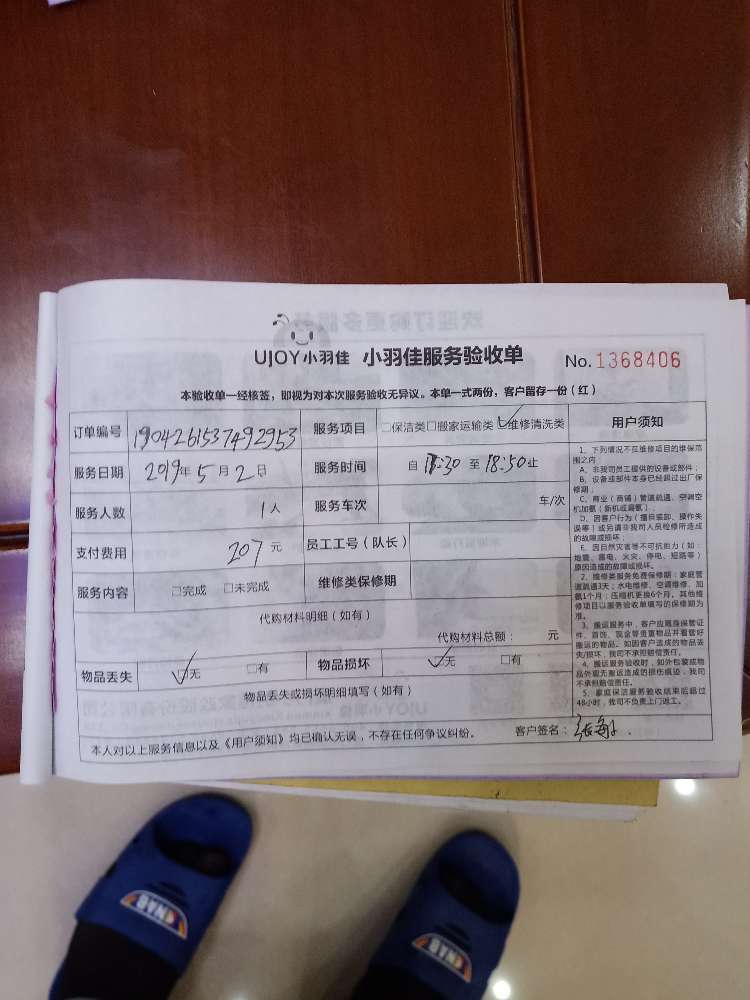 UJOY小羽佳 小羽佳服务验收单 No.1368406
本验收单一经核签，即视为对本次服务验收无异议。本单一式两份，客户留存一份（红）
订单编号 1904261537492953 服务项目 □保洁类□搬家运输类☑维修清洗类
服务日期 2019年5月2日 服务时间 自 :30 至 18:50止
服务人数 1人 服务车次 车/次
支付费用 207元 员工工号（队长）
服务内容 □完成 □未完成 维修类保修期
代购材料明细（如有）
代购材料总额： 元
物品丢失 ☑无 □有 物品损坏 ☑无 □有
物品丢失或损坏明细填写（如有）
本人对以上服务信息以及《用户须知》均已确认无误，不存在任何争议纠纷。 客户签名：张
用户须知
1、下列情况不在维修项目的维保范
围之内
A、非我司员工提供的设备或部件；
B、设备或部件本身已经超过出厂保
修期；
C、商业（商铺）管道疏通、空调空
机加氟（新机或漏氟）；
D、因客户行为（擅自装卸、操作失
误等）或另请非我司人员检修所造成
的故障或损坏；
E、因自然灾害等不可抗拒力（如：
地震、雷电、火灾、停电、短路等）
原因造成的故障或损坏。
2、维修类服务免费保修期：家庭管
道疏通3天；水电维修、空调维修、加
氟1个月；压缩机更换6个月。其他维
修项目以服务验收单填写的保修期为
准。
3、搬运服务中，客户应随身保管证
件、首饰、现金等贵重物品并看管好
搬运的物品。如因客户造成的物品丢
失/损坏，我司不承担赔偿责任。
4、搬运服务验收时，如外包装或物
品外观无搬运造成的损伤痕迹，我司
不承担赔偿责任。
5、家庭保洁服务验收结束后超过
48小时，我司不负责上门返工。